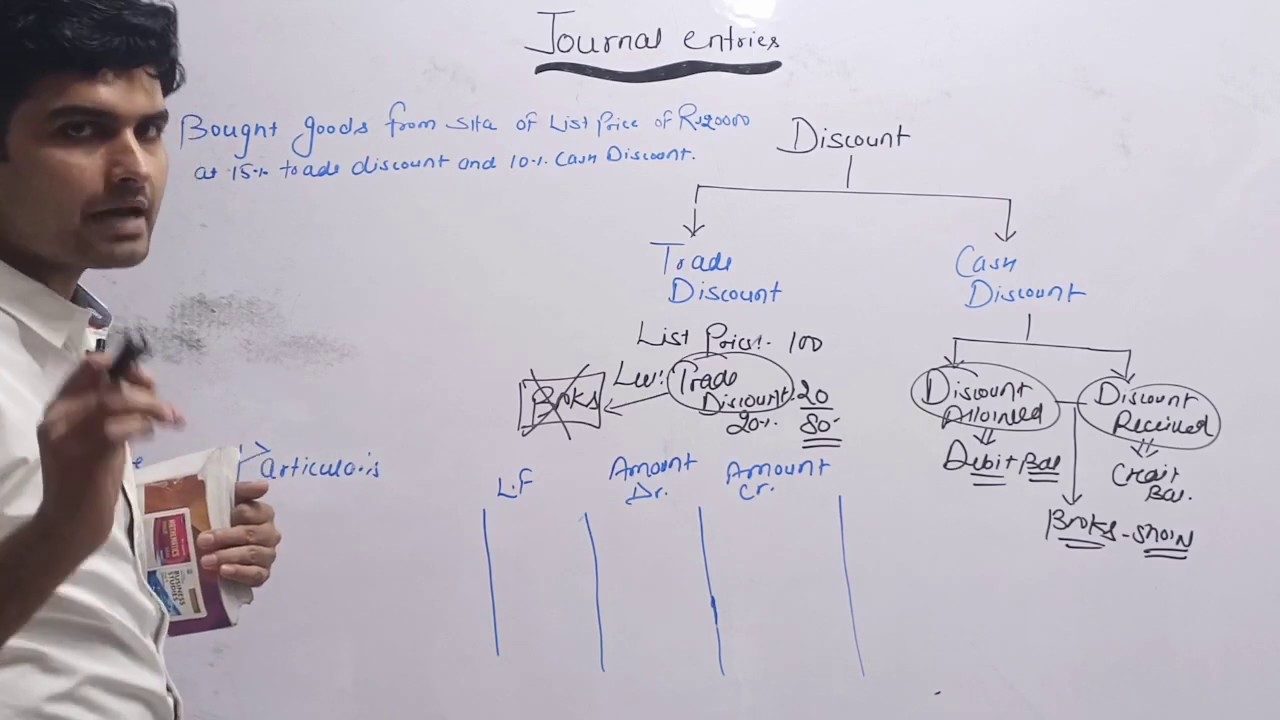 Journal entries
Bought goods from Sita of List Price of Rs 20000
at 15% trade discount and 10% Cash Discount.
Discount
Trade
Discount
Cash
Discount
List Price:- 100
Less: Trade
Discount 20
20% 80
Books
Discount
Allowed
Debit Bal
Discount
Received
Credit
Bal.
Books - Show
Particulars
L.F
Amount
Dr.
Amount
Cr.
BUSINESS
STUDIES